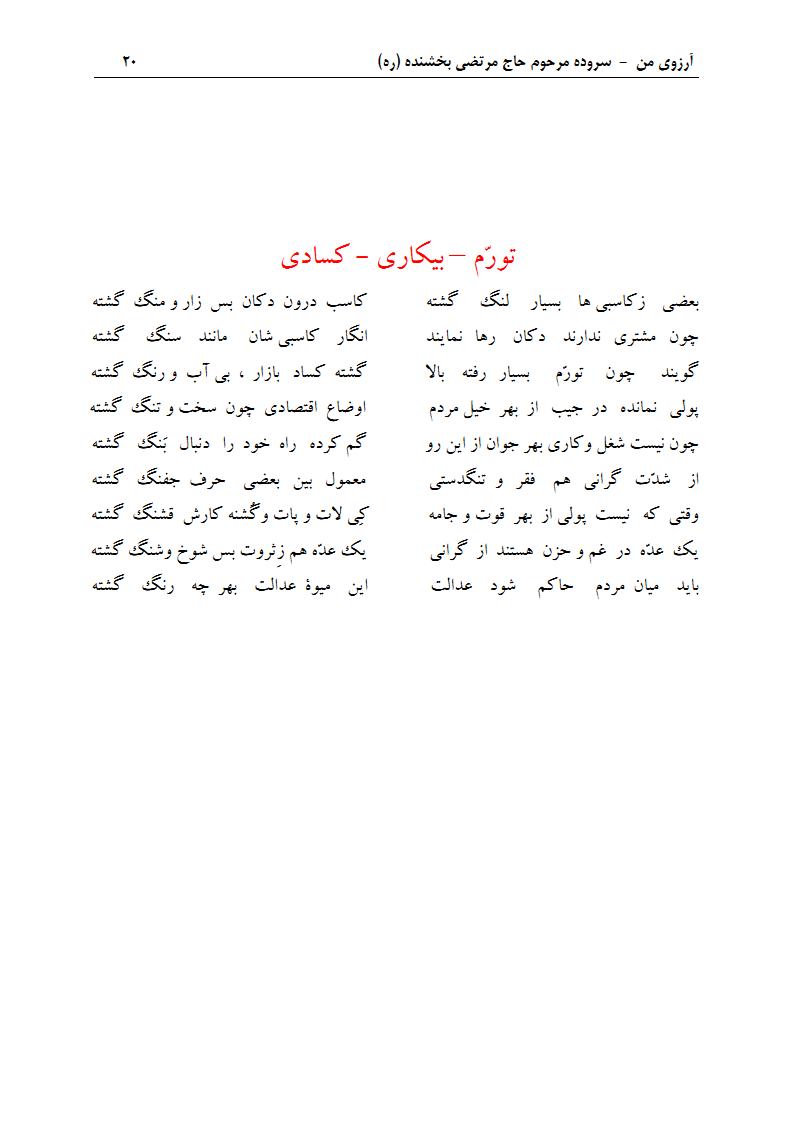 آرزوی من - سروده مرحوم حاج مرتضی بخشنده (ره) ۲۰
تورّم – بیکاری - کسادی
بعضی زکاسبی ها بسیار لنگ گشته کاسب درون دکان بس زار و منگ گشته
چون مشتری ندارند دکان رها نمایند انگار کاسبی شان مانند سنگ گشته
گویند چون تورّم بسیار رفته بالا گشته کساد بازار ، بی آب و رنگ گشته
پولی نمانده در جیب از بهر خیل مردم اوضاع اقتصادی چون سخت و تنگ گشته
چون نیست شغل وکاری بهر جوان از این رو گم کرده راه خود را دنبال بَنگ گشته
از شدّت گرانی هم فقر و تنگدستی معمول بین بعضی حرف جفنگ گشته
وقتی که نیست پولی از بهر قوت و جامه کِی لات و پات وگُشنه کارش قشنگ گشته
یک عدّه در غم و حزن هستند از گرانی یک عدّه هم زِثروت بس شوخ وشنگ گشته
باید میان مردم حاکم شود عدالت این میوۀ عدالت بهر چه رنگ گشته